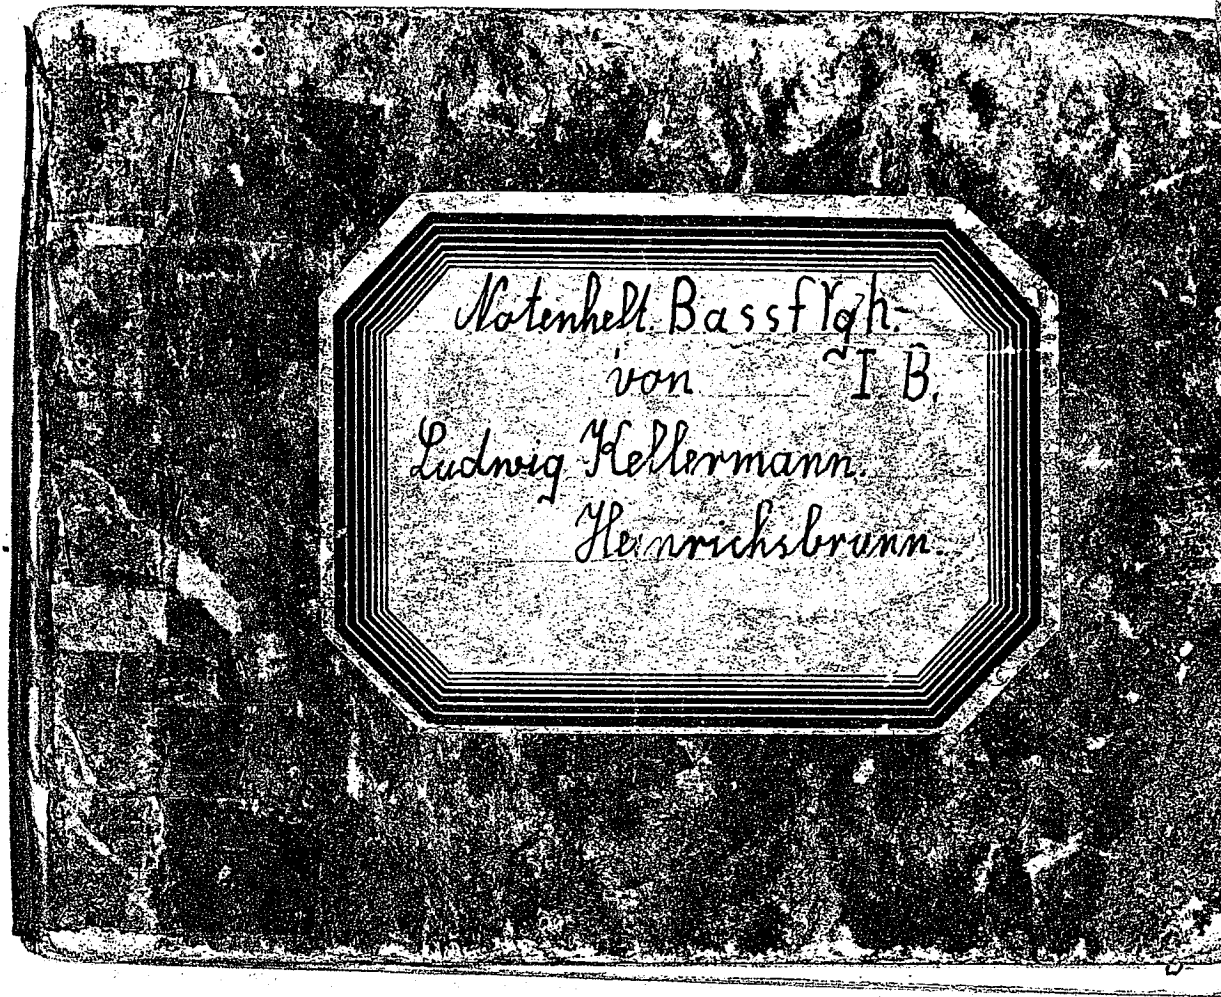 Notenheft Bassflgh.
von I B.
Ludwig Kellermann.
Heinrichsbrunn.